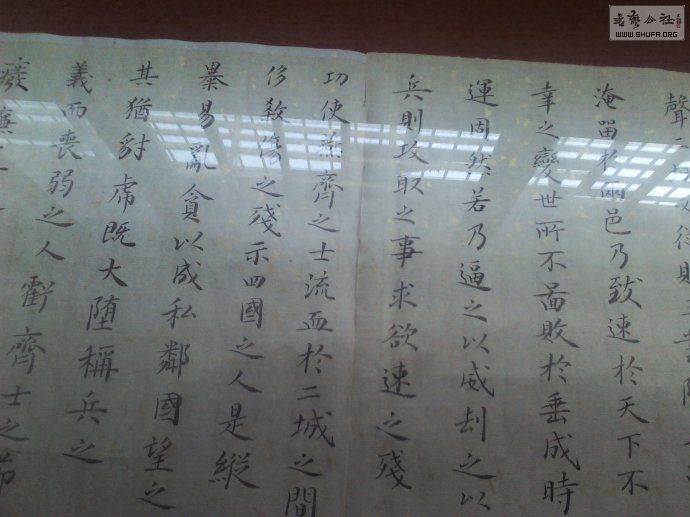 書藝公社
WWW.SHUFA.ORG
聲二
淹留於兩邑乃致速於天下不
幸之變世所不啚敗於垂成時
運固然若乃逼之以威刦之以
兵則攻取之事求欲速之殘
功使燕齊之士流血於二城之間
侈殺傷之殘示四國之人是縱
暴易亂貪以成私鄰國望之
其猶豺虎既大堕稱兵之
義而喪弱之人虧齊士之節
廢廉